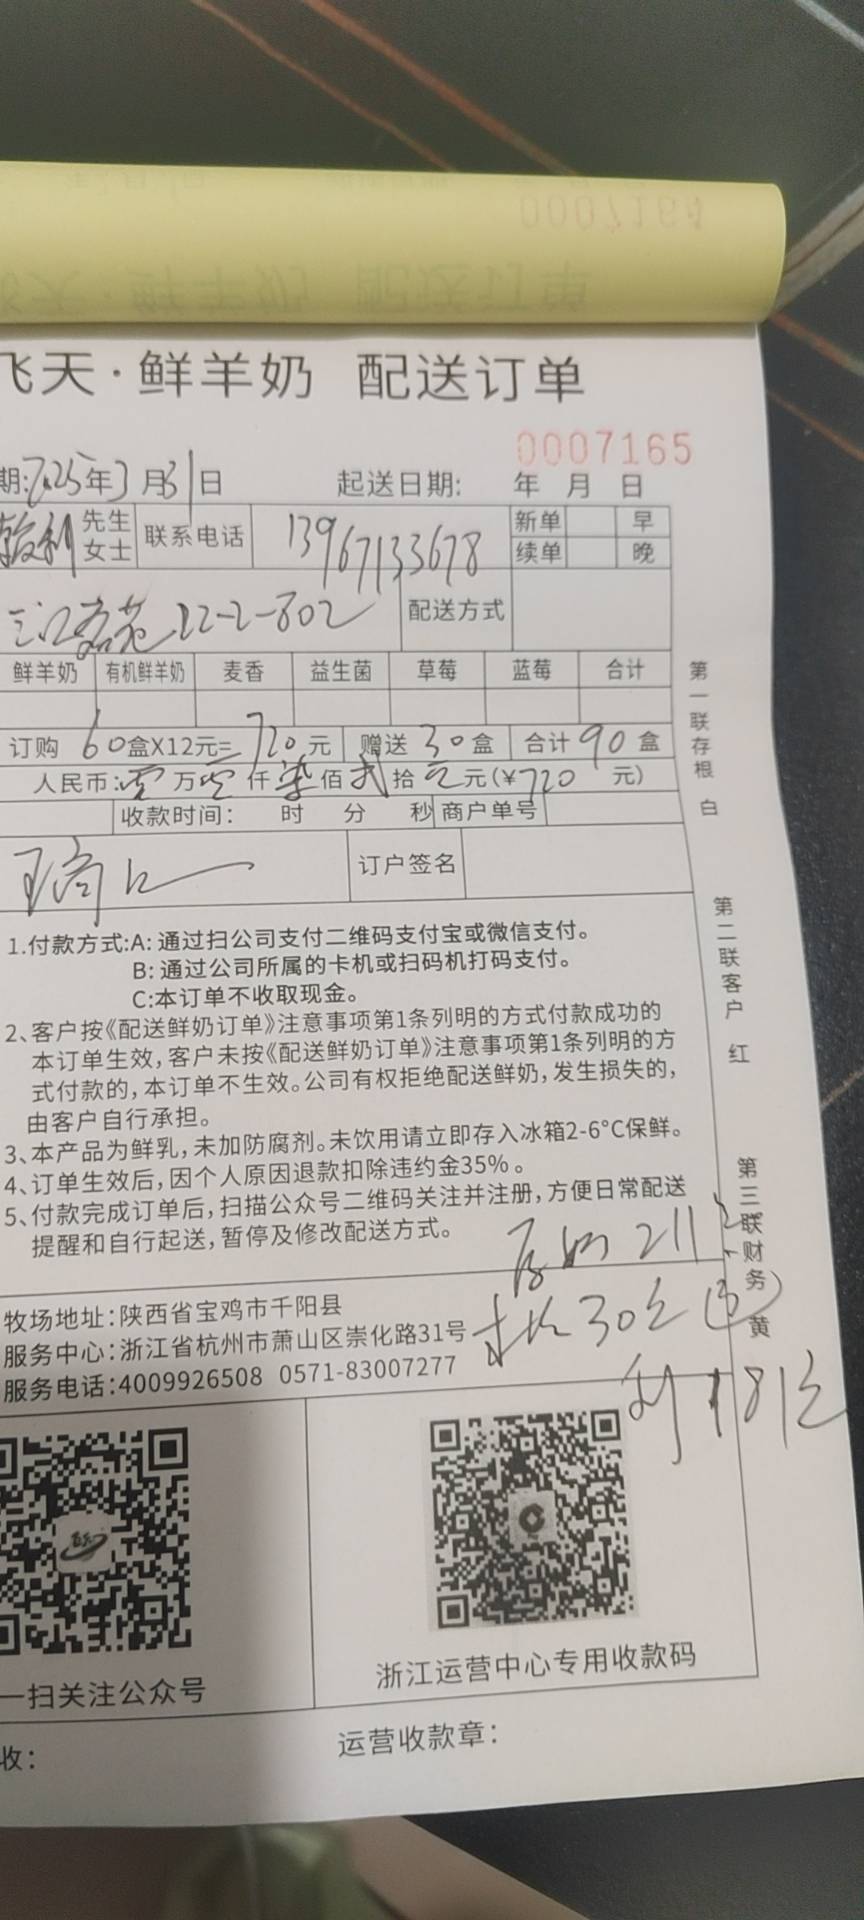 飞天·鲜羊奶 配送订单
0007165
期:2025年3月31日 起送日期: 年 月 日
先生 女士 联系电话 13967133678 新单 早
续单 晚
22-2-802 配送方式
鲜羊奶 有机鲜羊奶 麦香 益生菌 草莓 蓝莓 合计
订购 60盒X12元= 720元 赠送 30盒 合计 90盒
人民币: 零万零仟柒佰贰拾元元(¥720 元)
收款时间: 时 分 秒 商户单号
订户签名
1.付款方式:A: 通过扫公司支付二维码支付宝或微信支付。
B: 通过公司所属的卡机或扫码机打码支付。
C:本订单不收取现金。
2、客户按《配送鲜奶订单》注意事项第1条列明的方式付款成功的
本订单生效,客户未按《配送鲜奶订单》注意事项第1条列明的方
式付款的,本订单不生效。公司有权拒绝配送鲜奶,发生损失的,
由客户自行承担。
3、本产品为鲜乳,未加防腐剂。未饮用请立即存入冰箱2-6°C保鲜。
4、订单生效后,因个人原因退款扣除违约金35%。
5、付款完成订单后,扫描公众号二维码关注并注册,方便日常配送
提醒和自行起送,暂停及修改配送方式。
211
30
181
牧场地址:陕西省宝鸡市千阳县
服务中心:浙江省杭州市萧山区崇化路31号
服务电话:4009926508 0571-83007277
一扫关注公众号
浙江运营中心专用收款码
收:
运营收款章:
第一联存根 白
第二联客户 红
第三联财务 黄
0007164
飞天·鲜羊奶 配送订单